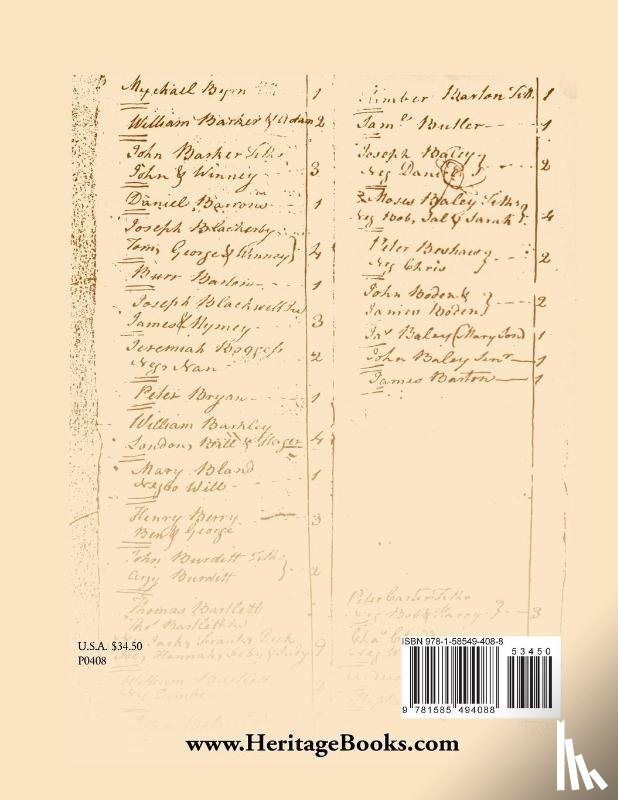 Mychael Byrn 1
William Barker & Adam 2
John Barker Tiths
John & Winney 3
Daniel Barrow 1
Joseph Blackerby
Tom, George & Winney 4
Burr Barlow 1
Joseph Blackwell
James & Nymey 3
Jeremiah Boggess
Neg Nan 2
Peter Bryan 1
William Barkley
London, Brill & Hager 4
Mary Bland 1
Negro Will
Henry Berry 3
Ben & George
John Burditt Tiths
Burditt 2
Thomas Bartlett
Thos Bartlett
Jack, Frank, Dick
Hannah, & Judy 9
William
Kimber Barton Tith. 1
Saml. Butler 1
Joseph Baley
Neg Daniel 2
Moses Baley Tiths
Neg Bob, Sal & Sarah 4
Peter Beshaw
Neg Chris 2
John Boden &
James Boden 2
Jas Baley (Mary Son) 1
John Baley Senr 1
James Barton 1
Peter Carter Tiths
Neg Bob & Harry 3
Chas
U.S.A. $34.50
P0408
ISBN 978-1-58549-408-8
53450
9 781585 494088
www.HeritageBooks.com